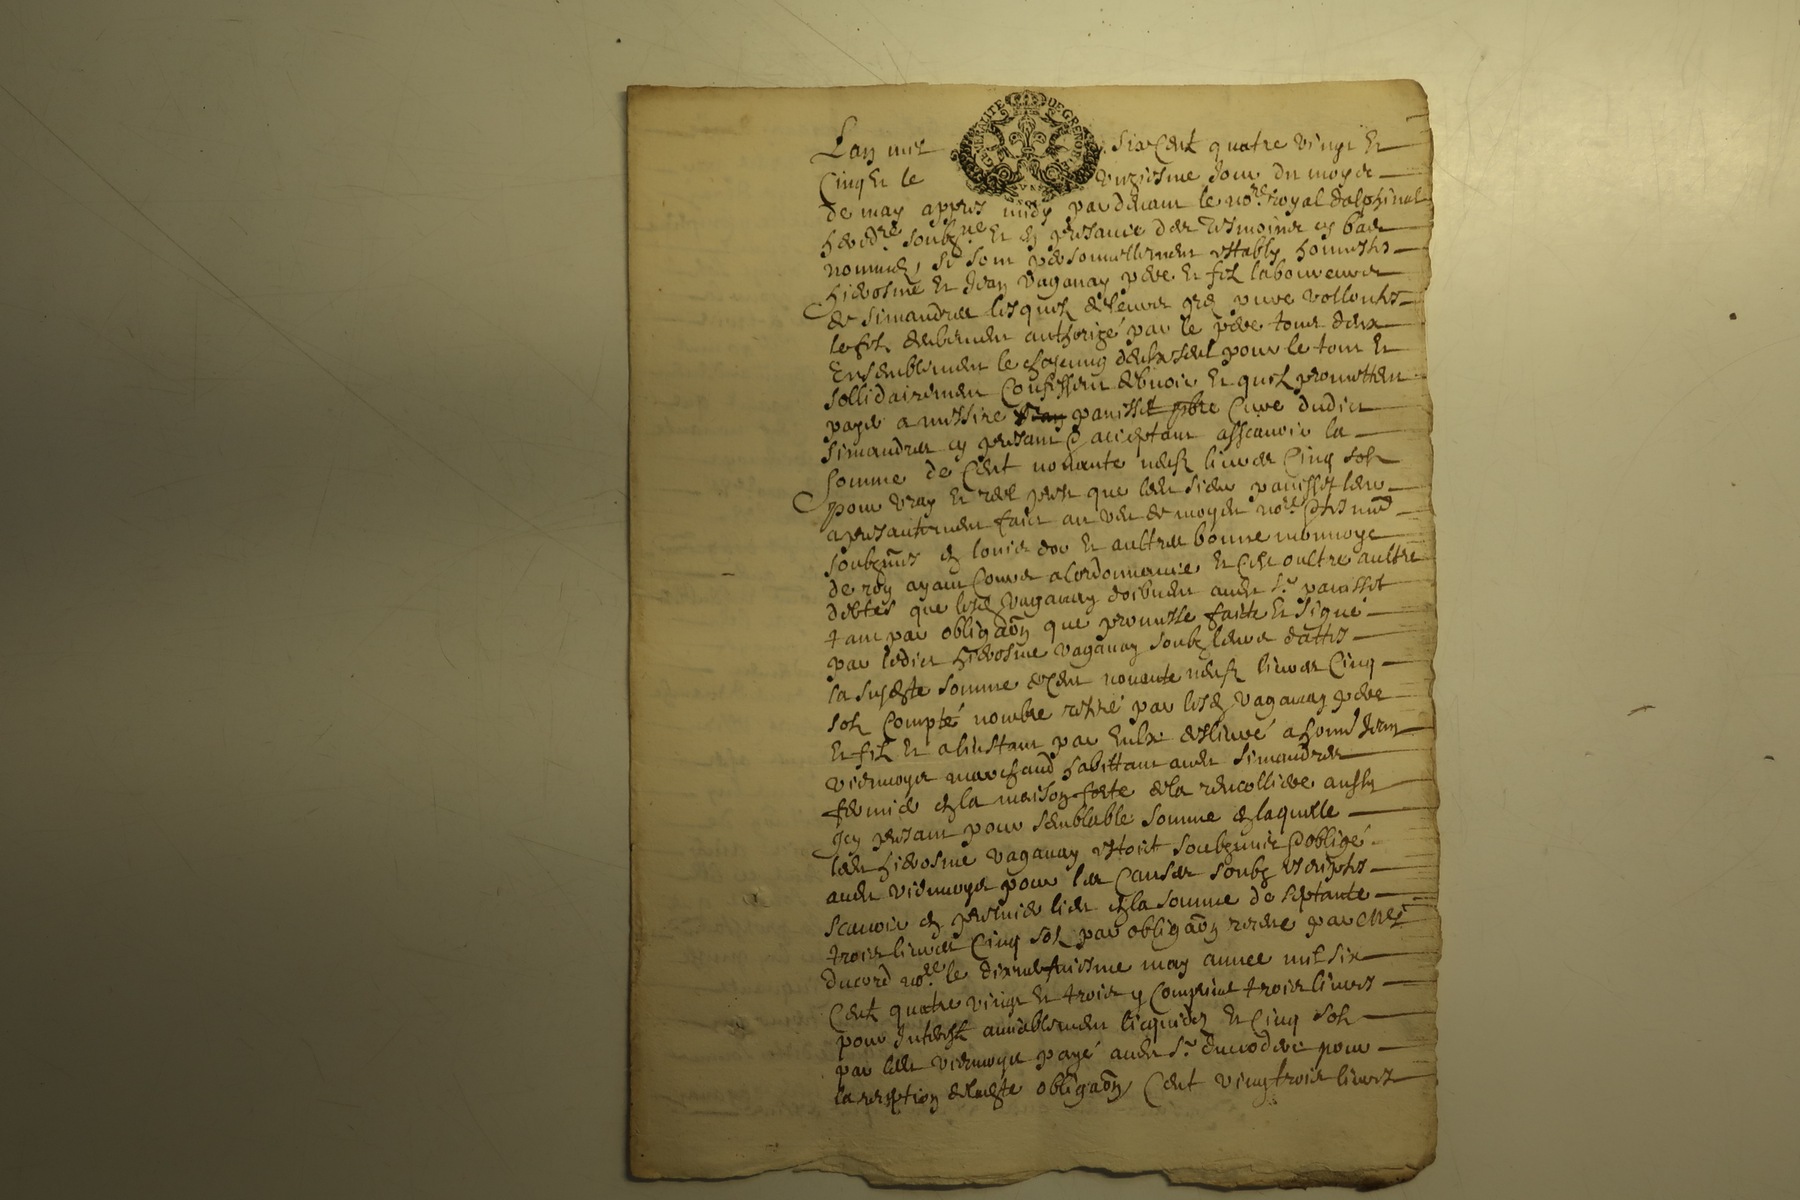 GNERALITE DE GRENOBLE
Lan mil six Cent quatre vingt Et
Cinq Et le unziesme Jour du moys de
de may appres midy par devant le no.re royal dalphinal
hered.re soubz.ne Et en presance des tesmoins cy bas
nommes, se sont personnellement establys honnestes
hierosme Et Jean Vaganay pere Et filz laboureurs
de simandres lesquelz de leurs gré pure vollontes
le filz deubement authorizé par le pere tous deux
Ensemblement le chascung deulx seul pour le tout Et
sollidairement Confessent debvoir Et quilz promettent
payer a messire panisset Cure dudict
simandres cy presant & acceptant asscavoir la
somme de Cent nonante neufz livres Cinq solz
pour vray Et reel prest que ledit sieur panisset leur
a presantement faict au veu de moydit no.re
soubznes En louis dor Et aultres bonne monnoye
de roy ayant Cours a lordonnance Et Cest oultre aultre
debtes que lesd Vaganay doibvent audit s.r panisset
tant par obligaon que promesse faicte Et signé
par ledict hierosme vaganay soubz leurs dattes
la susdte somme de Cent nonante neufz livres Cinq
solz Compté nombre retiré par lesd Vaganay pere
Et filz Et a linstant par Eulx deslivré a hons Jean
viermoye marchand habittant audit simandres
fermier En la maison forte de la aussy
Icy presant pour semblable somme En laquelle
ledit hierosme vaganay Estoit obligé
audit viermoye pour les Causes soubz Escriptes
scavoir En premier lieu En la somme de septante
trois livres Cinq solz par obligaon par me
ducord no.re le may annee mil six
Cent quatre vingt Et trois y Comprins trois livres
pour Interestz amiablement licquides Et Cinq solz
par ledit viermoye payé audit s.r pour
la de ladte obligaon Cent vingt trois livres